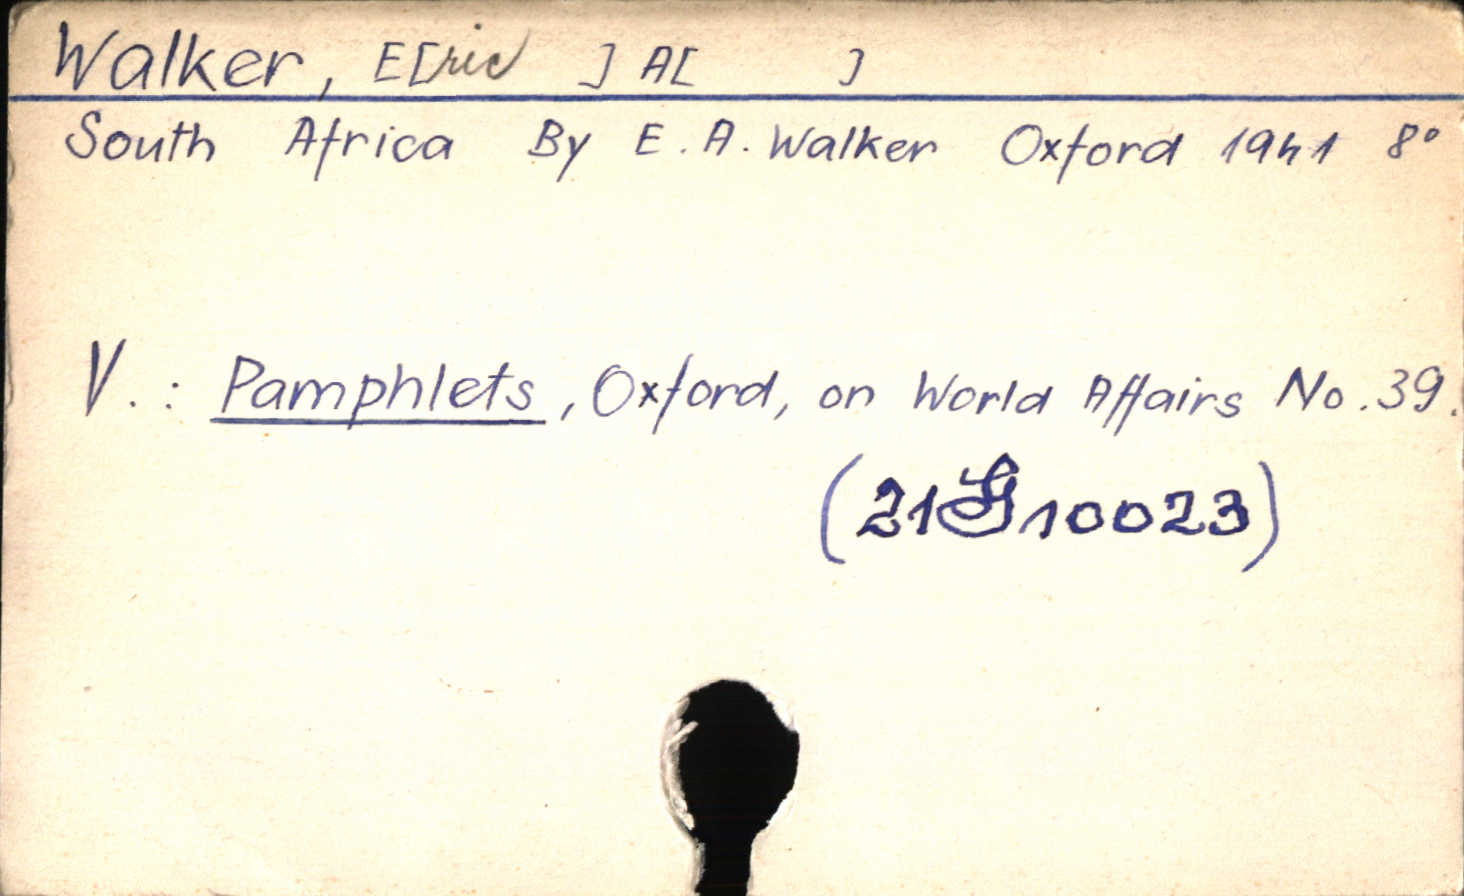 Walker, E[ric ] A[ ]
South Africa By E. A. Walker Oxford 1941 8°
V.: Pamphlets, Oxford, on World Affairs No. 39.
(21 G 10023)